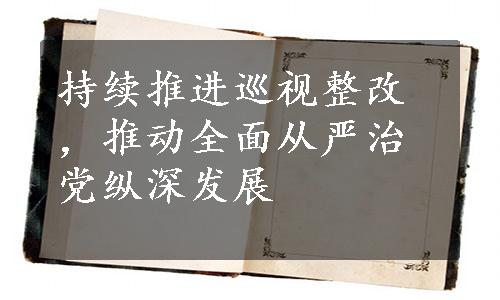 持续推进巡视整改
，推动全面从严治
党纵深发展